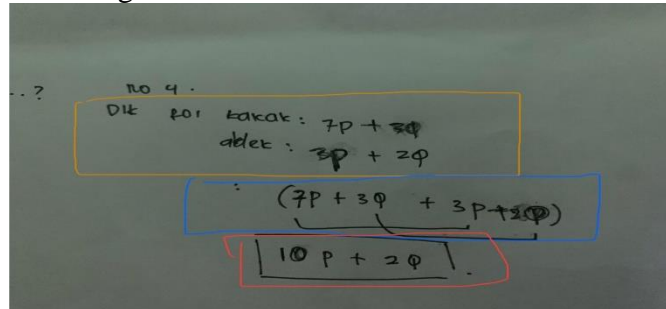 ..?
no 4.
Dik roi kakak: 7p + 3φ
adek: 3p + 2φ
: (7p + 3φ + 3p + 2φ)
10 p + 2φ.